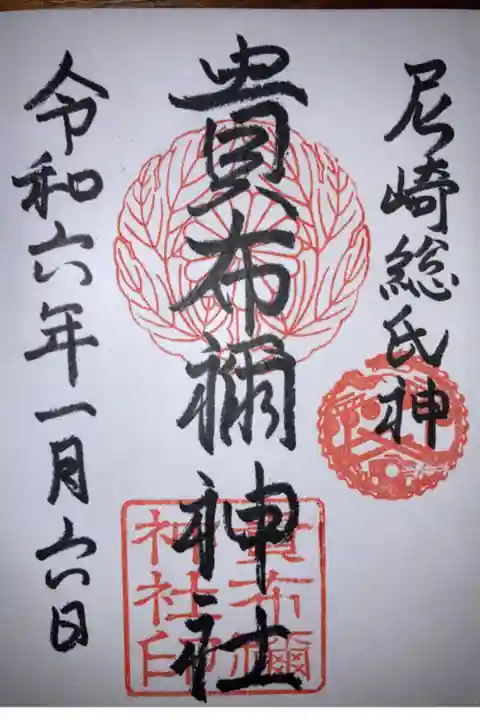 尼崎総氏神
貴布禰神社
貴布禰神社印
令和六年一月六日